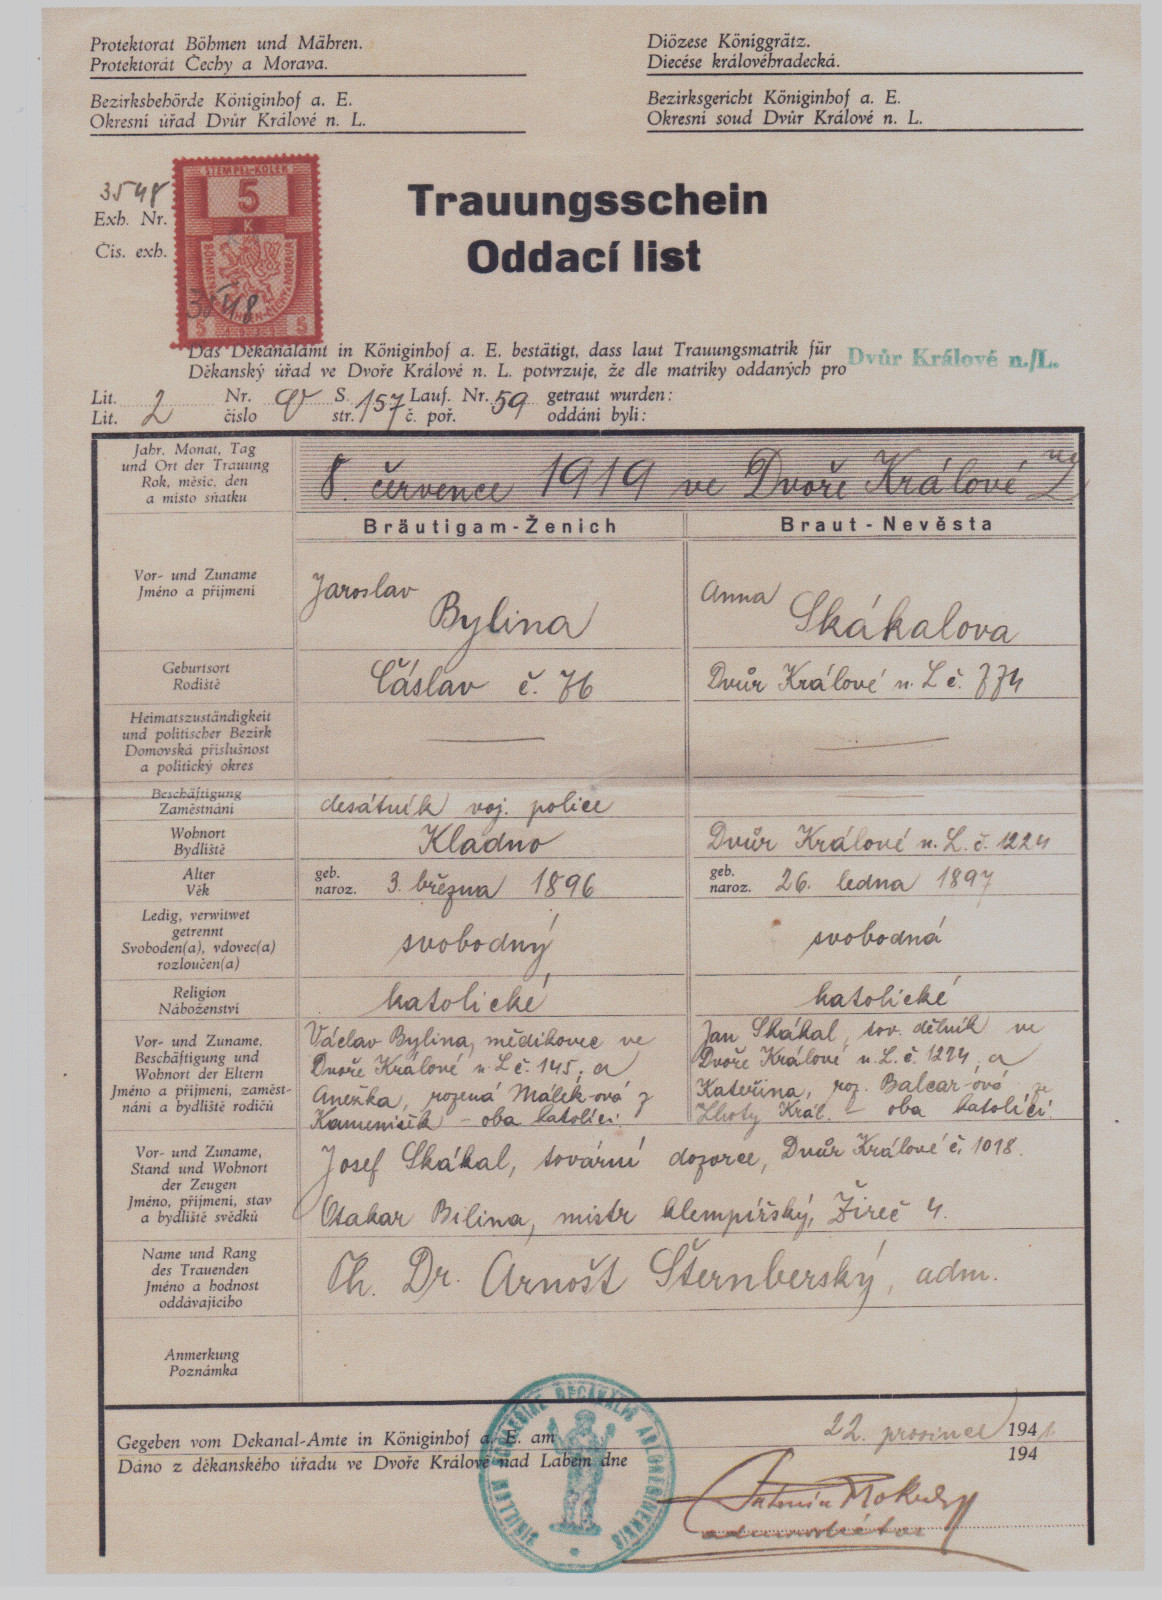 Protektorat Böhmen und Mähren.
Protektorát Čechy a Morava.
Diözese Königgrätz.
Diecése královéhradecká.
Bezirksbehörde Königinhof a. E.
Okresní úřad Dvůr Králové n. L.
Bezirksgericht Königinhof a. E.
Okresní soud Dvůr Králové n. L.
3548
Exh. Nr.
Čis. exh.
STEMPEL-KOLEK
5
K
3548
5 5
Trauungsschein
Oddací list
Das Dekanalamt in Königinhof a. E. bestätigt, dass laut Trauungsmatrik für
Děkanský úřad ve Dvoře Králové n. L. potvrzuje, že dle matriky oddaných pro
Dvůr Králové n./L.
Lit. Nr. S. Lauf. Nr. getraut wurden:
Lit. 2 číslo str. 157 č. poř. 59 oddáni byli:
Jahr, Monat, Tag
und Ort der Trauung
Rok, měsíc, den
a místo sňatku
8. července 1919 ve Dvoře Králové n/L
Bräutigam-Ženich
Braut-Nevěsta
Vor- und Zuname
Jméno a příjmení
Jaroslav
Bylina
Anna
Skákalova
Geburtsort
Rodiště
Čáslav č. 76
Dvůr Králové n. L č. 774
Heimatszuständigkeit
und politischer Bezirk
Domovská příslušnost
a politický okres
Beschäftigung
Zaměstnání
desátník voj. police
Wohnort
Bydliště
Kladno
Dvůr Králové n. L. č. 1224
Alter
Věk
geb.
naroz. 3. března 1896
geb.
naroz. 26. ledna 1897
Ledig, verwitwet
getrennt
Svoboden(a), vdovec(a)
rozloučen(a)
svobodný
svobodná
Religion
Náboženství
katolické
katolické
Vor- und Zuname,
Beschäftigung und
Wohnort der Eltern
Jméno a příjmení, zaměst-
nání a bydliště rodičů
Václav Bylina, mědikovec ve
Dvoře Králové n. L č. 145, a
Anežka, rozená Málek-ová z
Kameniček - oba katolíci.
Jan Skákal, tov. dělník ve
Dvoře Králové n. L. č. 1224, a
Kateřina, roz. Balcar-ová ze
Lhoty Král. - oba katolíci.
Vor- und Zuname,
Stand und Wohnort
der Zeugen
Jméno, příjmení, stav
a bydliště svědků
Josef Skákal, tovární dozorce, Dvůr Králové č. 1018.
Otakar Bilina, mistr klempířský, Žireč 4.
Name und Rang
des Trauenden
Jméno a hodnost
oddávajícího
Th. Dr. Arnošt Šternberský, adm.
Anmerkung
Poznámka
Gegeben vom Dekanal-Amte in Königinhof a. E. am 22. prosince 194
Dáno z děkanského úřadu ve Dvoře Králové nad Labem dne 194
Antonín
administrátor